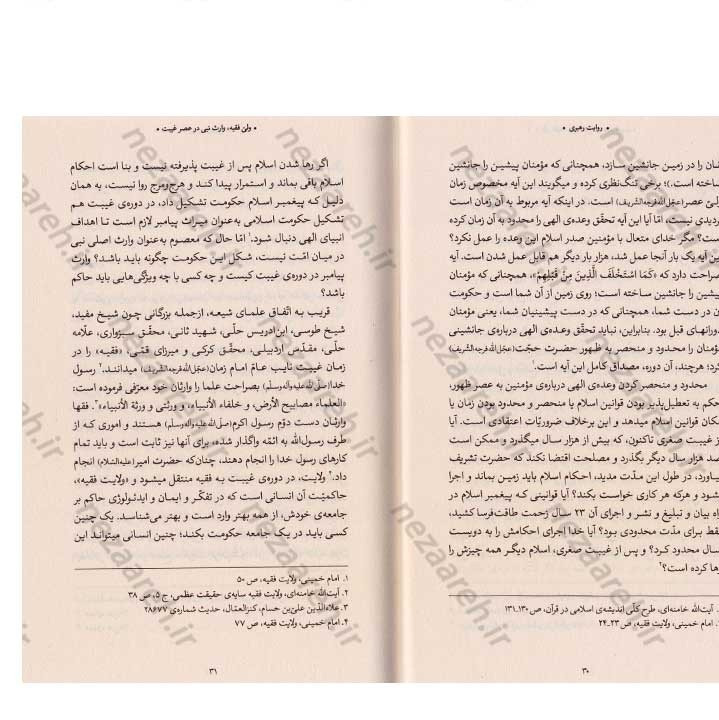 • روایت رهبری •
را در زمین جانشین سازد، همچنانی که مؤمنان پیشین را جانشین
است.)؛ برخی تنگ‌نظری کرده و میگویند این آیه مخصوص زمان
عصر(عجّل‌الله‌فرجه‌الشّریف) است. در اینکه آیه مربوط به آن زمان است
نیست، امّا آیا این آیه تحقّق وعده‌ی الهی را محدود به آن زمان کرده
مگر خدای متعال با مؤمنین صدر اسلام این وعده را عمل نکرد؟
آیه یک بار آنجا عمل شد، هزار بار دیگر هم قابل عمل شدن است. آیه
دارد که «کَمَا اسْتَخْلَفَ الَّذینَ مِنْ قَبْلِهِمْ»، همچنانی که مؤمنان
را جانشین ساخته است؛ روی زمین از آن شما است و حکومت
در دست شما، همچنانی که در دست پیشینیان شما، یعنی مؤمنان
قبل بود. بنابراین، نباید تحقّق وعده‌ی الهی درباره‌ی جانشینی
را محدود و منحصر به ظهور حضرت حجّت(عجّل‌الله‌فرجه‌الشّریف)
هرچند، آن دوره، مصداق کامل این آیه است.۱
محدود و منحصر کردن وعده‌ی الهی درباره‌ی مؤمنین به عصر ظهور،
به تعطیل‌پذیر بودن قوانین اسلام یا منحصر و محدود بودن زمان یا
قوانین اسلام میدهد و این برخلاف ضروریّات اعتقادی است. آیا
غیبت صغری تاکنون، که بیش از هزار سال میگذرد و ممکن است
هزار سال دیگر بگذرد و مصلحت اقتضا نکند که حضرت تشریف
در طول این مدّت مدید، احکام اسلام باید زمین بماند و اجرا
و هرکه هر کاری خواست بکند؟ آیا قوانینی که پیغمبر اسلام در
بیان و تبلیغ و نشر و اجرای آن ۲۳ سال زحمت طاقت‌فرسا کشید،
برای مدّت محدودی بود؟ آیا خدا اجرای احکامش را به دویست
محدود کرد؟ و پس از غیبت صغری، اسلام دیگر همه چیزش را
کرده است؟۲
آیت‌الله خامنه‌ای، طرح کلّی اندیشه‌ی اسلامی در قرآن، ص ۱۳۰ـ۱۳۱
امام خمینی، ولایت فقیه، ص ۲۳ـ۲۴
۳۰
• ولیّ فقیه، وارث نبی در عصر غیبت •
اگر رها شدن اسلام پس از غیبت پذیرفته نیست و بنا است احکام
اسلام باقی بماند و استمرار پیدا کند و هرج‌ومرج روا نیست، به همان
دلیل که پیغمبر اسلام حکومت تشکیل داد، در دوره‌ی غیبت هم
تشکیل حکومت اسلامی به‌عنوان میراث پیامبر لازم است تا اهداف
انبیای الهی دنبال شود.۱ امّا حال که معصوم به‌عنوان وارث اصلی نبی
در میان امّت نیست، شکل این حکومت چگونه باید باشد؟ وارث
پیامبر در دوره‌ی غیبت کیست و چه کسی با چه ویژگی‌هایی باید حاکم
باشد؟
قریب به اتّفاق علمای شیعه، ازجمله بزرگانی چون شیخ مفید،
شیخ طوسی، ابن‌ادریس حلّی، شهید ثانی، محقّق سبزواری، علّامه
حلّی، مقدّس اردبیلی، محقّق کرکی و میرزای قمّی، «فقیه» را در
زمان غیبت نایب عامّ امام زمان(عجّل‌الله‌فرجه‌الشّریف) میدانند.۲ رسول
خدا(صلّی‌الله‌علیه‌وآله‌وسلّم) بصراحت علما را وارثان خود معرّفی فرموده است:
«العلماء مصابیح الأرض، و خلفاء الأنبیاء، و ورثتی و ورثة الأنبیاء»۳. فقها
وارثان دست دوّم رسول اکرم(صلّی‌الله‌علیه‌وآله‌وسلّم) هستند و اموری که از
طرف رسول‌الله به ائمّه واگذار شده، برای آنها نیز ثابت است و باید تمام
کارهای رسول خدا را انجام دهند، چنان‌که حضرت امیر(علیه‌السّلام) انجام
داد.۴ ولایت، در دوره‌ی غیبت به فقیه منتقل میشود و «ولایت فقیه»،
حاکمیّت آن انسانی است که در تفکّر و ایمان و ایدئولوژی حاکم بر
جامعه‌ی خودش، از همه بهتر وارد است و بهتر می‌شناسد. یک چنین
کسی باید در یک جامعه حکومت بکند؛ چنین انسانی میتواند این
۱. امام خمینی، ولایت فقیه، ص ۵۰
۲. آیت‌الله خامنه‌ای، ولایت فقیه سایه‌ی حقیقت عظمی، ج ۵، ص ۳۸
۳. علاءالدّین علی‌بن حسام، کنزالعمّال، حدیث شماره‌ی ۲۸۶۷۷
۴. امام خمینی، ولایت فقیه، ص ۷۷
۳۱
nezaareh.ir